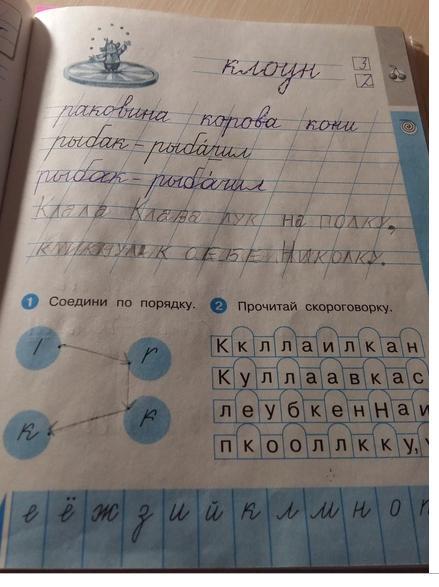 клоун
3
2
раковина корова кони
рыбак - рыбачил
рыбак - рыбачил
Клала Клава лук на полку,
кликнула к себе Николку.
1 Соедини по порядку.
2 Прочитай скороговорку.
г
к
к
К к л л а и л к а н
К у л л а а в к а с
л е у б к е н Н а и
п к о о л л к к у,
е ё ж з и й к л м н о п